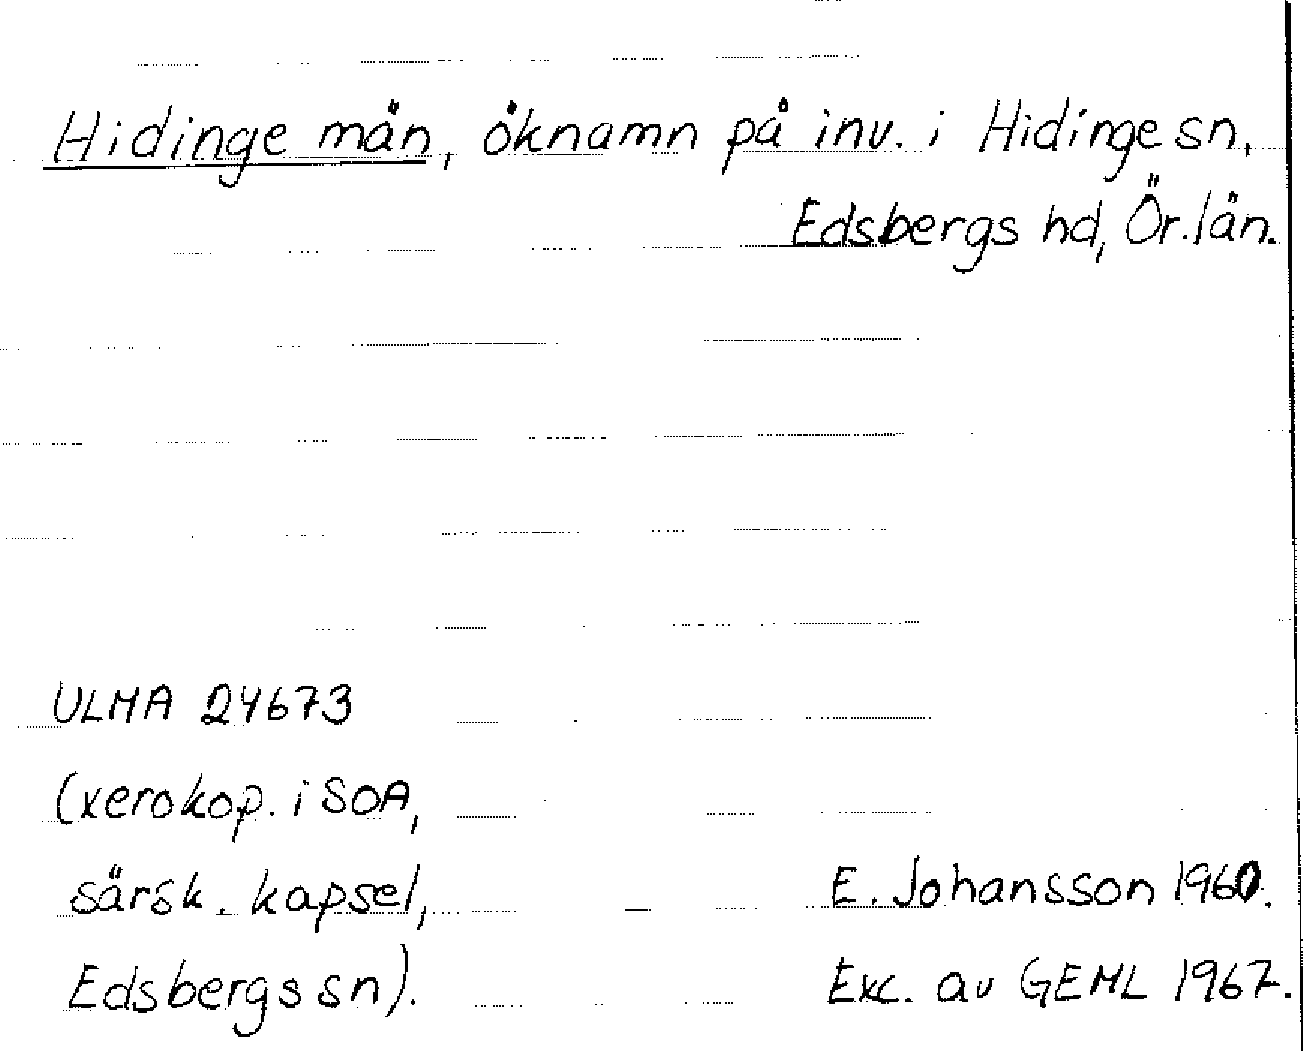 Hidinge män, öknamn på inv. i Hidinge sn,
Edsbergs hd, Ör. län.
ULMA 24673
(xerokop. i SOA,
särsk. kapsel,
Edsbergs sn).
E. Johansson 1960.
Exc. av GEML 1967.